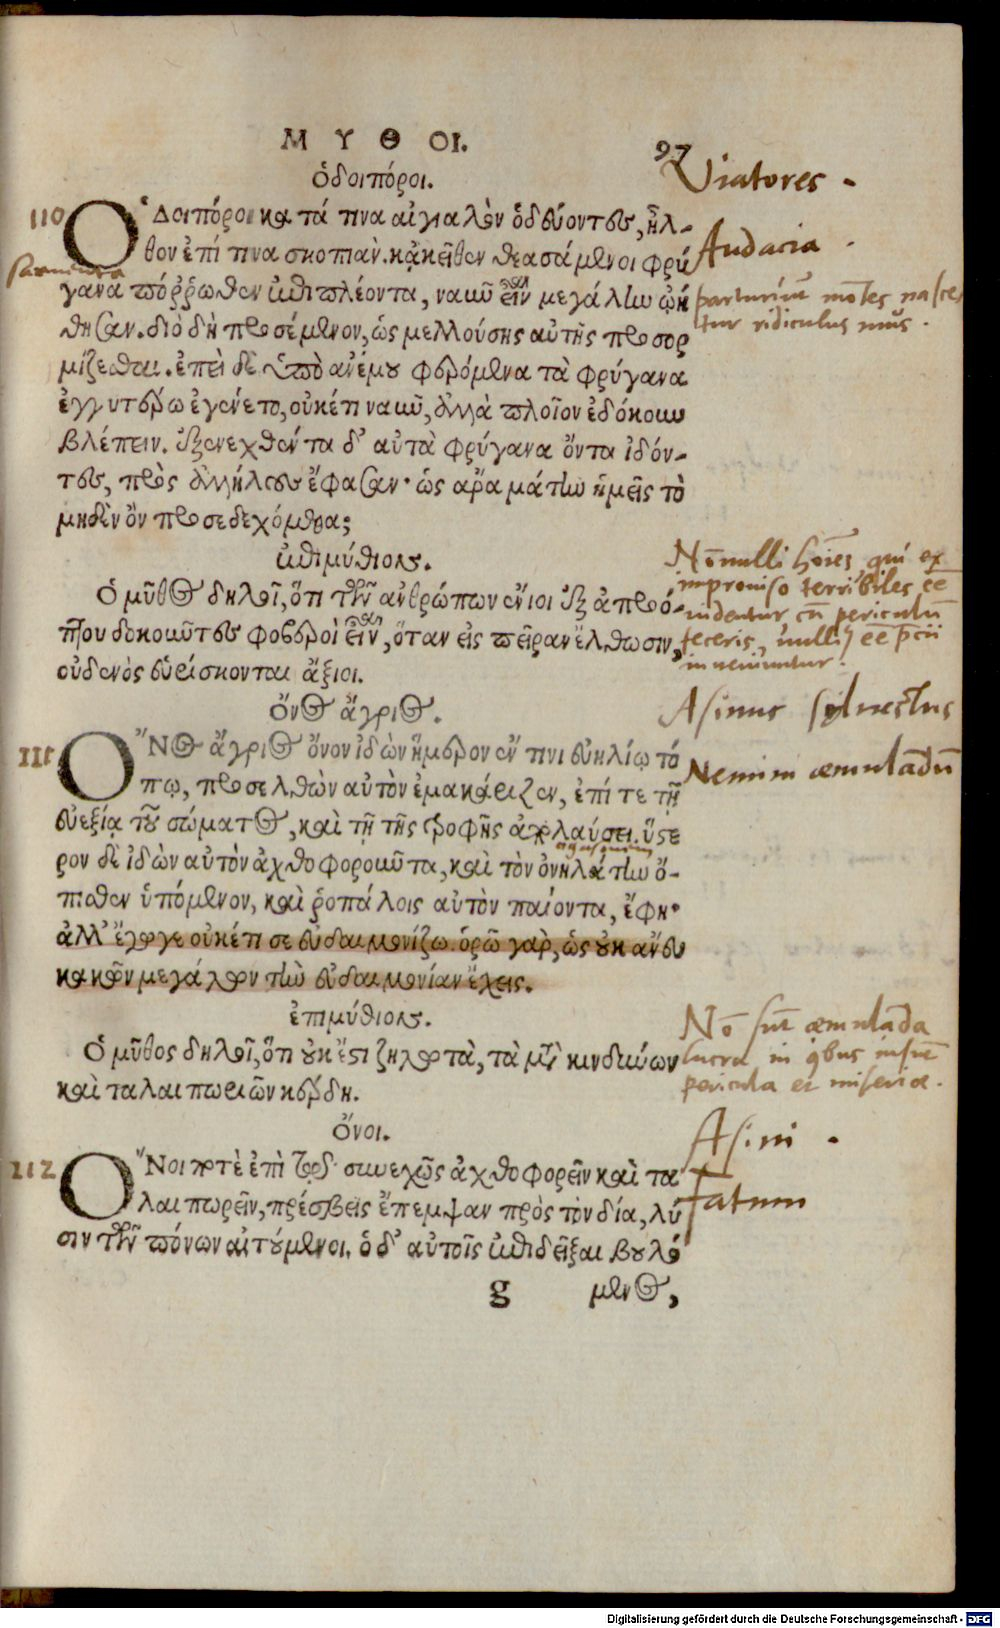 ΜΥΘΟΙ.
97
Ὁδοιπόροι.
Viatores.
110
Ὁδοιπόροι κατά τινα αἰγιαλὸν ὁδεύοντες, ἦλ-
θον ἐπί τινα σκοπιὰν. κᾀκεῖθεν θεασάμενοι φρύ
Audacia.
sarmenta
γανα πόῤῥωθεν ἐπιπλέοντα, ναῦν εἶναι μεγάλην ᾠή
parturiūt mōtes nasce
θησαν. διὸ δὴ προσέμενον, ὡς μελλούσης αὐτῆς προσορ
tur ridiculus mus.
μίζεσθαι. ἐπεὶ δὲ ὑπὸ ἀνέμου φερόμενα τὰ φρύγανα
ἐγγυτέρω ἐγένετο, οὐκέτι ναῦν, ἀλλὰ πλοῖον ἐδόκουν
βλέπειν. ἐξενεχθέντα δ' αὐτὰ φρύγανα ὄντα ἰδόν-
τες, πρὸς ἀλλήλους ἔφασαν· ὡς ἄρα μάτην ἡμεῖς τὸ
μηδὲν ὂν προσεδεχόμεθα;
ἐπιμύθιον.
Ὁ μῦθος δηλοῖ, ὅτι τῶν ἀνθρώπων ἔνιοι ἐξ ἀπροό-
πτου δοκοῦντες φοβεροὶ εἶναι, ὅταν εἰς πεῖραν ἔλθωσιν,
οὐδενὸς εὑρίσκονται ἄξιοι.
Nōnulli hoīes qui ex
improuiso terribiles eē
uidentur, cū periculū
feceris, nulli eē p̄cii
inueniuntur.
Ὄνος ἄγριος.
Asinus syluestris
111
Ὄνος ἄγριος ὄνον ἰδὼν ἥμερον ἔν τινι εὐηλίῳ τό
πῳ, προσελθὼν αὐτὸν ἐμακάριζεν, ἐπί τε τῇ
Nemini æmulādū
εὐεξίᾳ τοῦ σώματος, καὶ τῇ τῆς τροφῆς ἀπολαύσει. ὕστε
ρον δὲ ἰδὼν αὐτὸν ἀχθοφοροῦντα, καὶ τὸν ὀνηλάτην ὄ-
πισθεν ἑπόμενον, καὶ ῥοπάλοις αὐτὸν παίοντα, ἔφη·
ἀλλ' ἔγωγε οὐκέτι σε εὐδαιμονίζω. ὁρῶ γὰρ, ὡς οὐκ ἄνευ
κακῶν μεγάλων τὴν εὐδαιμονίαν ἔχεις.
ἐπιμύθιον.
Ὁ μῦθος δηλοῖ, ὅτι οὐκ ἔστι ζηλωτὰ, τὰ μετὰ κινδύνων
καὶ ταλαιπωριῶν κέρδη.
Nō sūt æmulāda
lucra in qbus insūt
pericula et miseriæ.
Ὄνοι.
Asini.
112
Ὄνοι ποτὲ ἐπὶ τῷ συνεχῶς ἀχθοφορεῖν καὶ τα
λαιπωρεῖν, πρέσβεις ἔπεμψαν πρὸς τὸν δία, λύ
Fatum
σιν τῶν πόνων αἰτούμενοι. ὁ δ' αὐτοῖς ἐπιδεῖξαι βουλό
g
μενος,
Digitalisierung gefördert durch die Deutsche Forschungsgemeinschaft - DFG